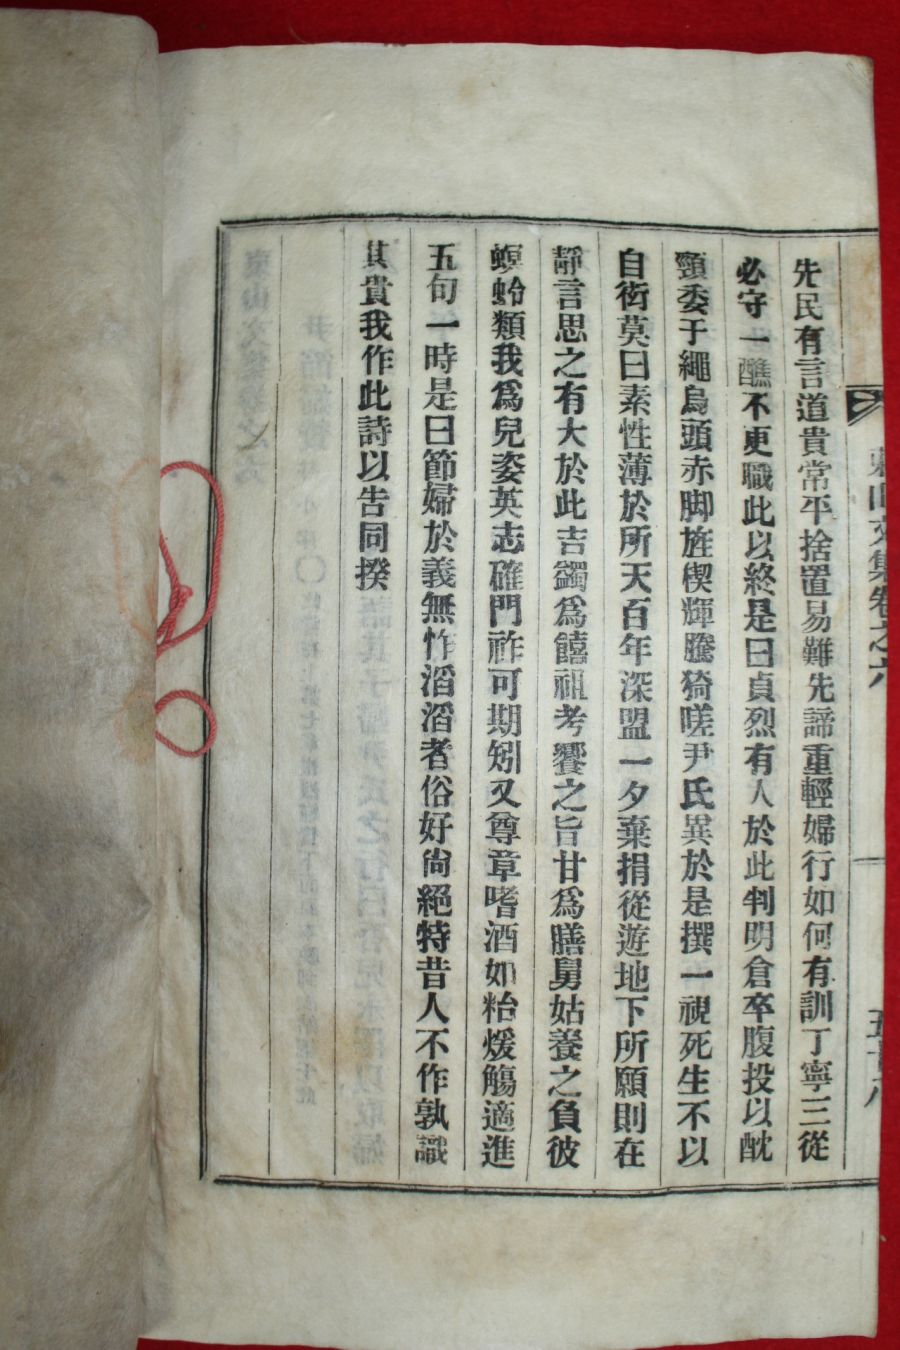 東山文集卷之六
先民有言道貴常平捨置易難先諦重輕婦行如何有訓丁寧三從
必守一醮不更職此以終是曰貞烈有人於此判明倉卒腹投以酖
頸委于繩烏頭赤脚旌楔輝騰猗嗟尹氏異於是撰一視死生不以
自衒莫曰素性薄於所天百年深盟一夕棄捐從遊地下所願則在
靜言思之有大於此吉蠲爲饎祖考饗之旨甘爲膳舅姑養之負彼
螟蛉類我爲兒姿英志確門祚可期矧又尊章嗜酒如粭煖觴適進
五旬一時是曰節婦於義無怍滔滔者俗好尙絕特昔人不作孰識
其貴我作此詩以告同揆